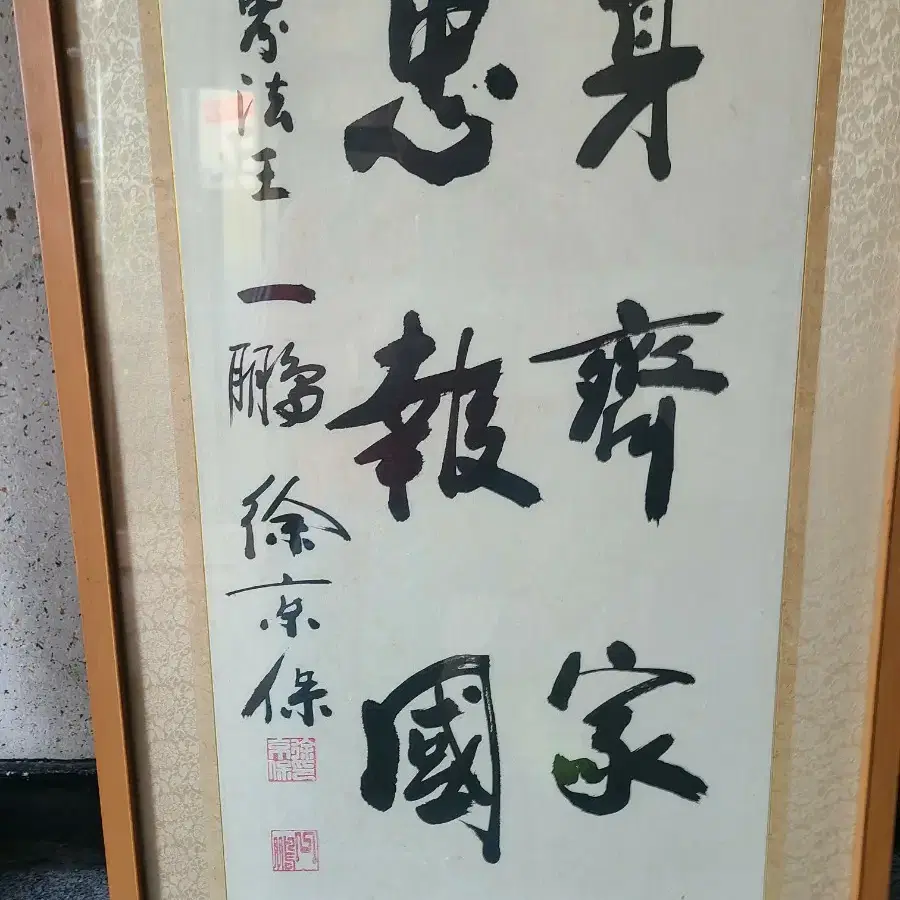 身齊家
忠報國
界法王 一鵬 徐京保